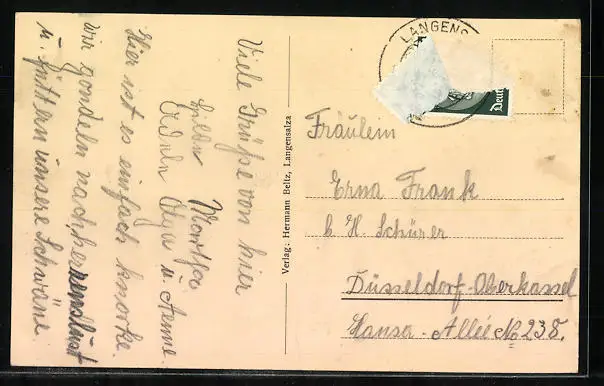 Viele Grüße von hier
Hilde Martha
Adele Olga u. Aenne
Hier ist es einfach knorke.
Wir gondeln nachher
u. füttern unsere Schwäne.
Verlag: Hermann Beltz, Langensalza
LANGENS
Deut
Fräulein
Erna Frank
b H. Schürer
Düsseldorf-Oberkassel
Hansa-Allée No 238.